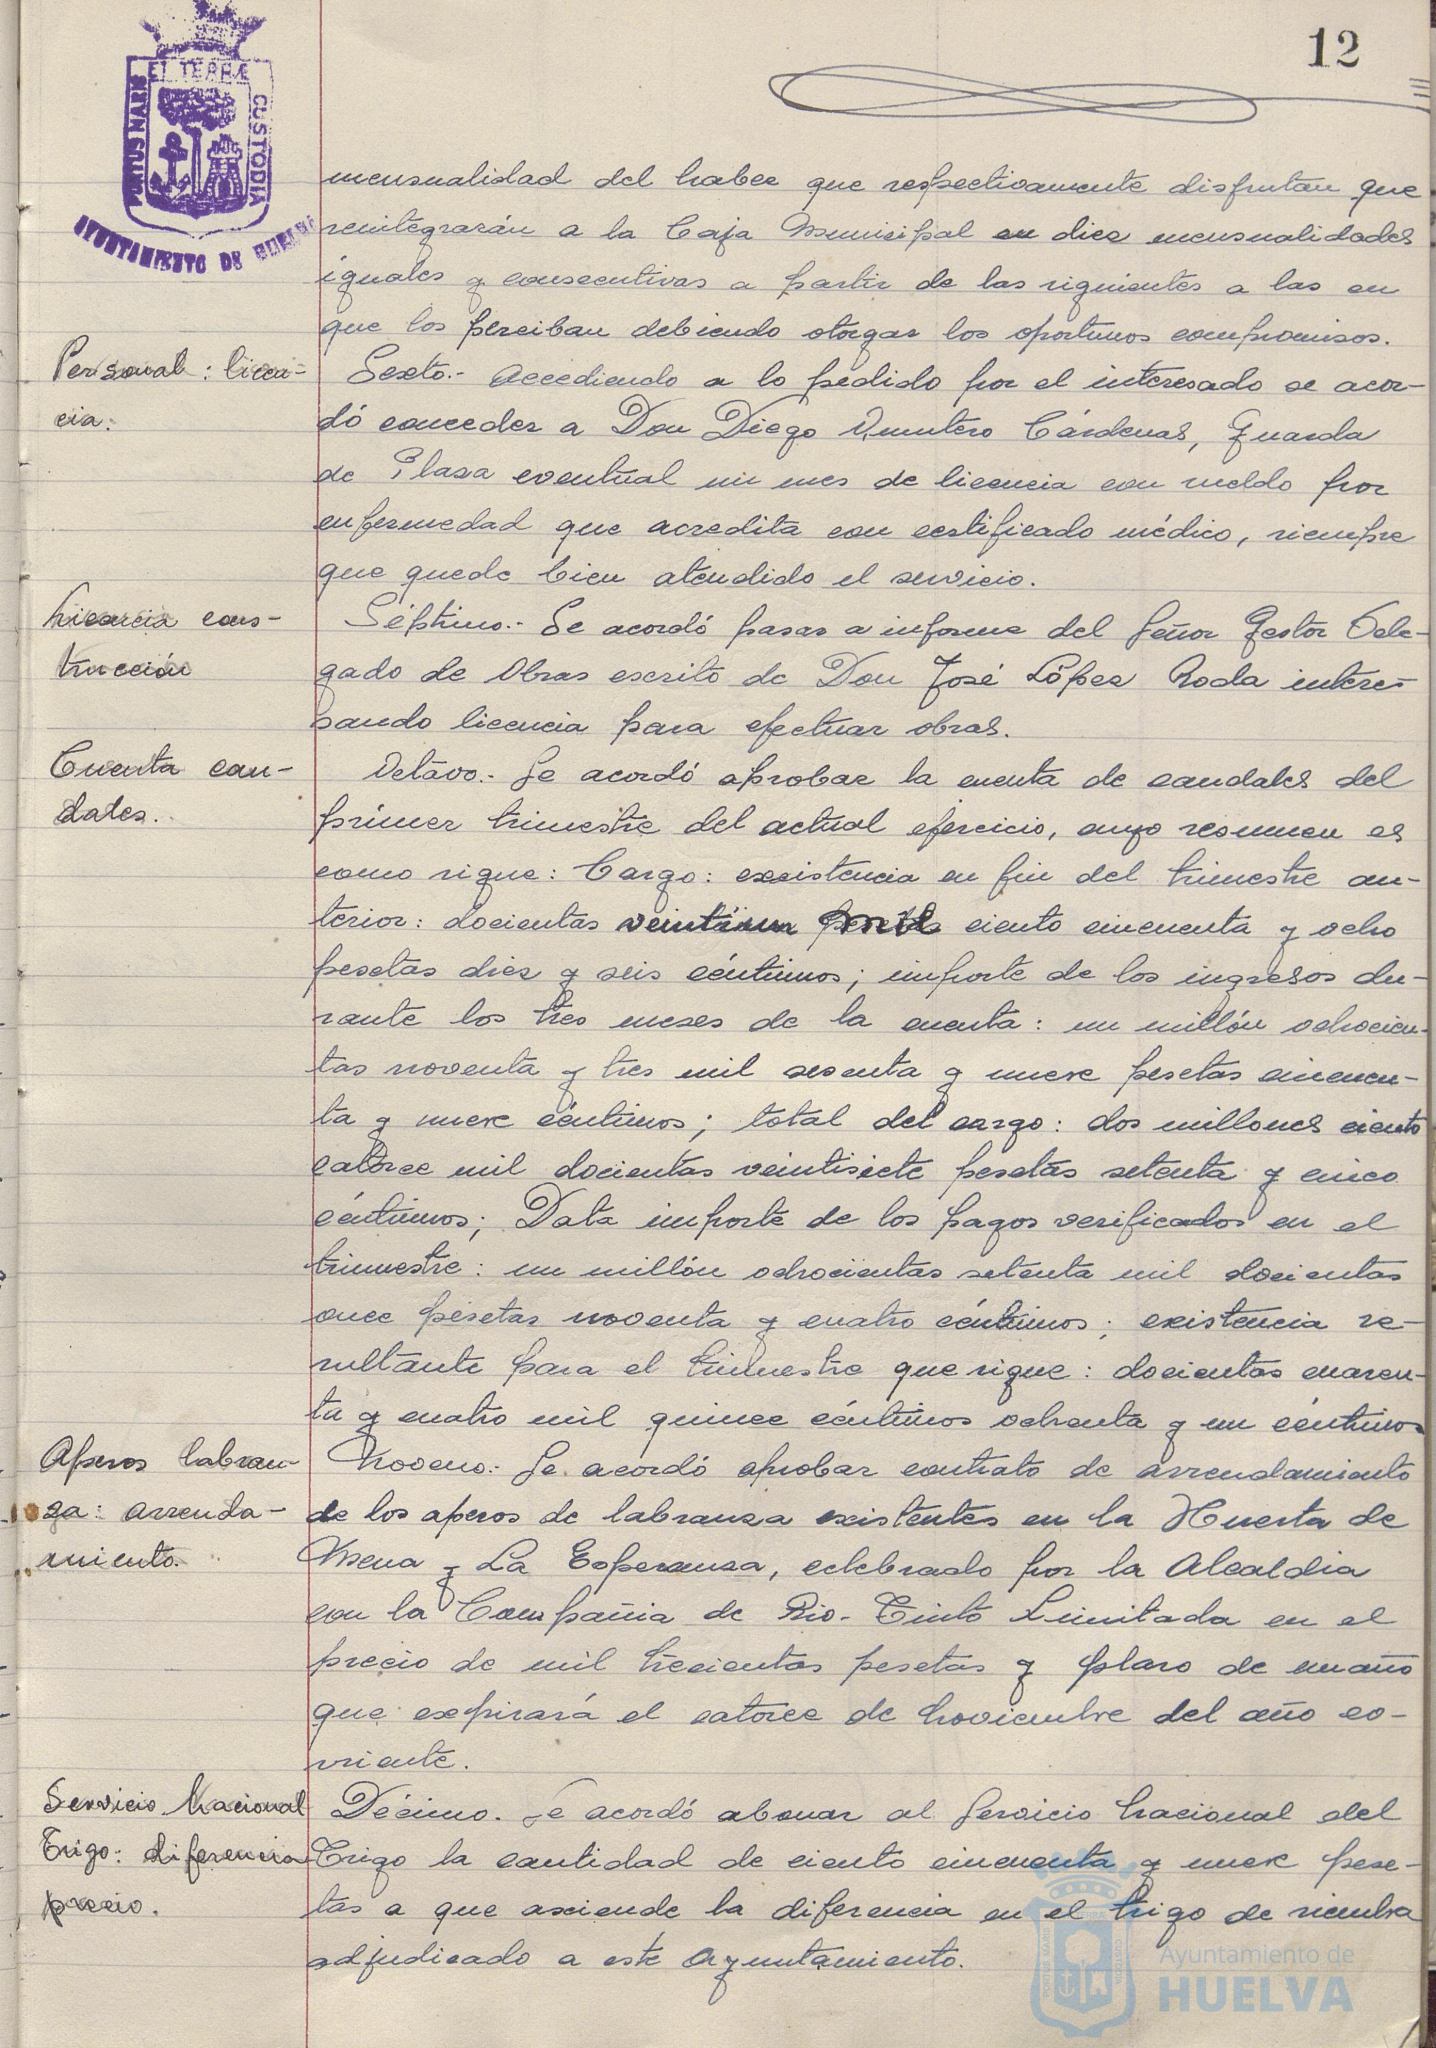 12
PORTUS MARIS ET TERRÆ CUSTODIA
AYUNTAMIENTO DE HUELVA
mensualidad del haber que respectivamente disfrutan que
reintegrarán a la Caja Municipal en diez mensualidades
iguales y consecutivas a partir de las siguientes a las en
que los perciban debiendo otorgar los oportunos compromisos.
Personal: licen-
cia.
Sexto.- Accediendo a lo pedido por el interesado se acor-
dó conceder a Don Diego Quintero Cárdenas, Guarda
de Plaza eventual un mes de licencia con sueldo por
enfermedad que acredita con certificado médico, siempre
que quede bien atendido el servicio.
Licencia cons-
trucción
Séptimo.- Se acordó pasar a informe del Señor Gestor Dele-
gado de Obras escrito de Don José López Roda intere-
sando licencia para efectuar obras.
Cuenta cau-
dales.
Octavo.- Se acordó aprobar la cuenta de caudales del
primer trimestre del actual ejercicio, cuyo resumen es
como sigue: Cargo: exsistencia en fin del trimestre an-
terior: docientas veintiun mil ciento cincuenta y ocho
pesetas diez y seis céntimos; importe de los ingresos du-
rante los tres meses de la cuenta: un millón ochocien-
tas noventa y tres mil sesenta y nueve pesetas cincuen-
ta y nueve céntimos; total del cargo: dos millones ciento
catorce mil docientas veintisiete pesetas setenta y cinco
céntimos; Data importe de los pagos verificados en el
trimestre: un millón ochocientas setenta mil docientas
once pesetas noventa y cuatro céntimos; existencia re-
sultante para el trimestre que sigue: docientas cuaren-
ta y cuatro mil quince céntimos ochenta y un céntimos
Aperos labran-
za: arrenda-
miento.
Noveno.- Se acordó aprobar contrato de arrendamiento
de los aperos de labranza existentes en la Huerta de
Mena y La Esperanza, celebrado por la Alcaldia
con la Compañia de Rio-Tinto Limitada en el
precio de mil trecientas pesetas y plazo de un año
que expirará el catorce de Noviembre del año co-
rriente.
Servicio Nacional
Trigo: diferencia
precio.
Décimo. Se acordó abonar al Servicio Nacional del
Trigo la cantidad de ciento cincuenta y nueve pese-
tas a que asciende la diferencia en el trigo de siembra
adjudicado a este Ayuntamiento.
Ayuntamiento de
HUELVA